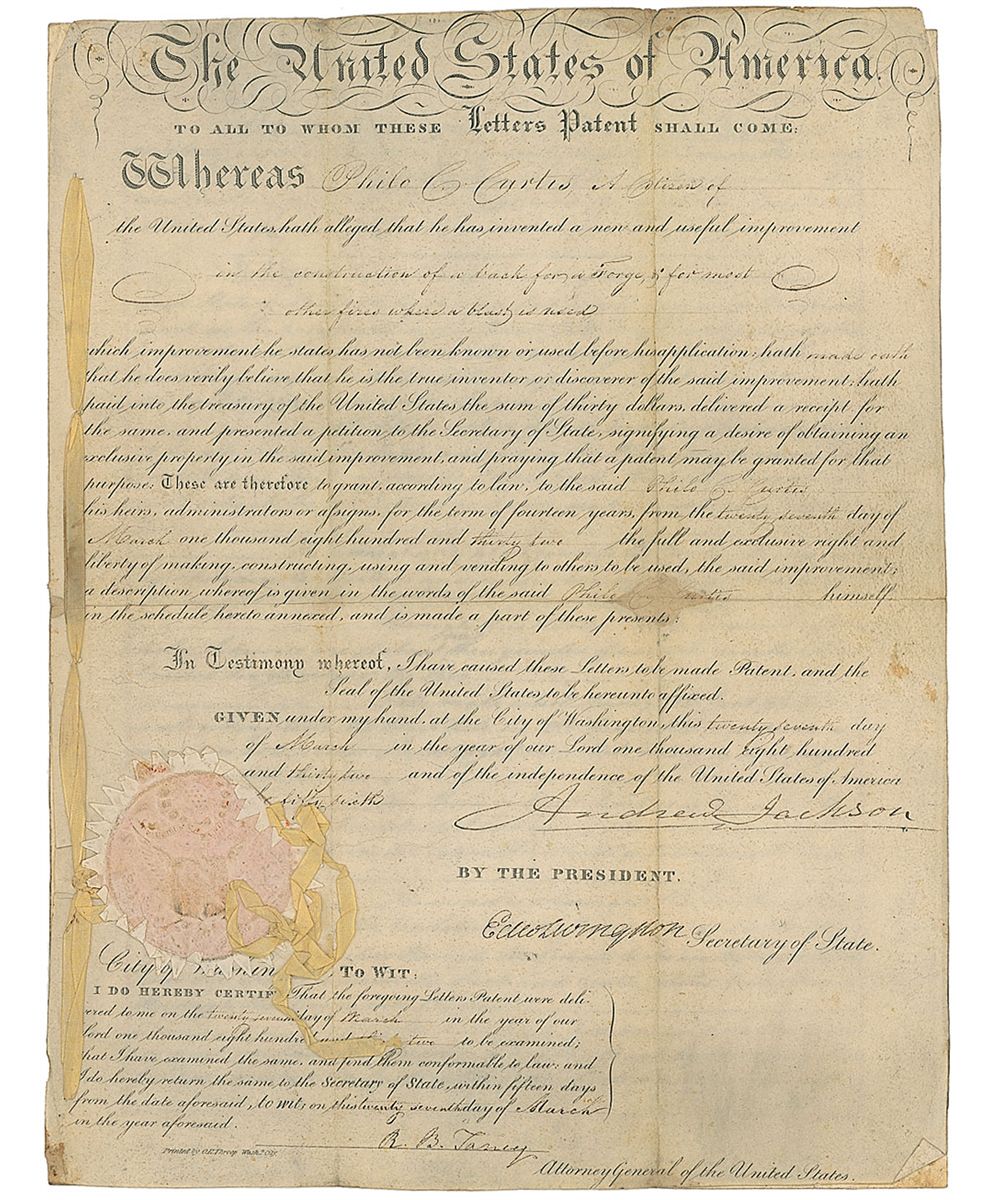 The United States of America.
TO ALL TO WHOM THESE Letters Patent SHALL COME:
Whereas Philo C. Curtis A Citizen of
the United States, hath alleged that he has invented a new and useful improvement
in the construction of a back for a Forge, & for most
other fires where a blast is used
which improvement he states has not been known or used before his application; hath made oath
that he does verily believe that he is the true inventor or discoverer of the said improvement; hath
paid into the treasury of the United States the sum of thirty dollars, delivered a receipt for
the same, and presented a petition to the Secretary of State, signifying a desire of obtaining an
exclusive property in the said improvement, and praying that a patent may be granted for that
purpose: These are therefore to grant, according to law, to the said Philo C. Curtis
his heirs, administrators or assigns, for the term of fourteen years, from the twenty seventh day of
March one thousand eight hundred and thirty two the full and exclusive right and
liberty of making, constructing, using and vending to others to be used, the said improvement;
a description whereof is given in the words of the said Philo C. Curtis himself,
in the schedule hereto annexed, and is made a part of these presents:
In Testimony whereof, I have caused these Letters to be made Patent, and the
Seal of the United States to be hereunto affixed.
GIVEN under my hand, at the City of Washington, this twenty seventh day
of March in the year of our Lord one thousand eight hundred
and thirty two and of the independence of the United States of America
fifty sixth
Andrew Jackson
BY THE PRESIDENT.
Edw Livingston Secretary of State.
City of To Wit:
I DO HEREBY CERTIF That the foregoing Letters Patent were deli-
vered to me on the twenty seventh day of March in the year of our
Lord one thousand eight hundred and two to be examined;
that I have examined the same, and find them conformable to law; and
I do hereby return the same to the Secretary of State, within fifteen days
from the date aforesaid, to wit; on this twenty seventh day of March
in the year aforesaid.
R. B. Taney
Printed by Wash. City
Attorney General of the United States.